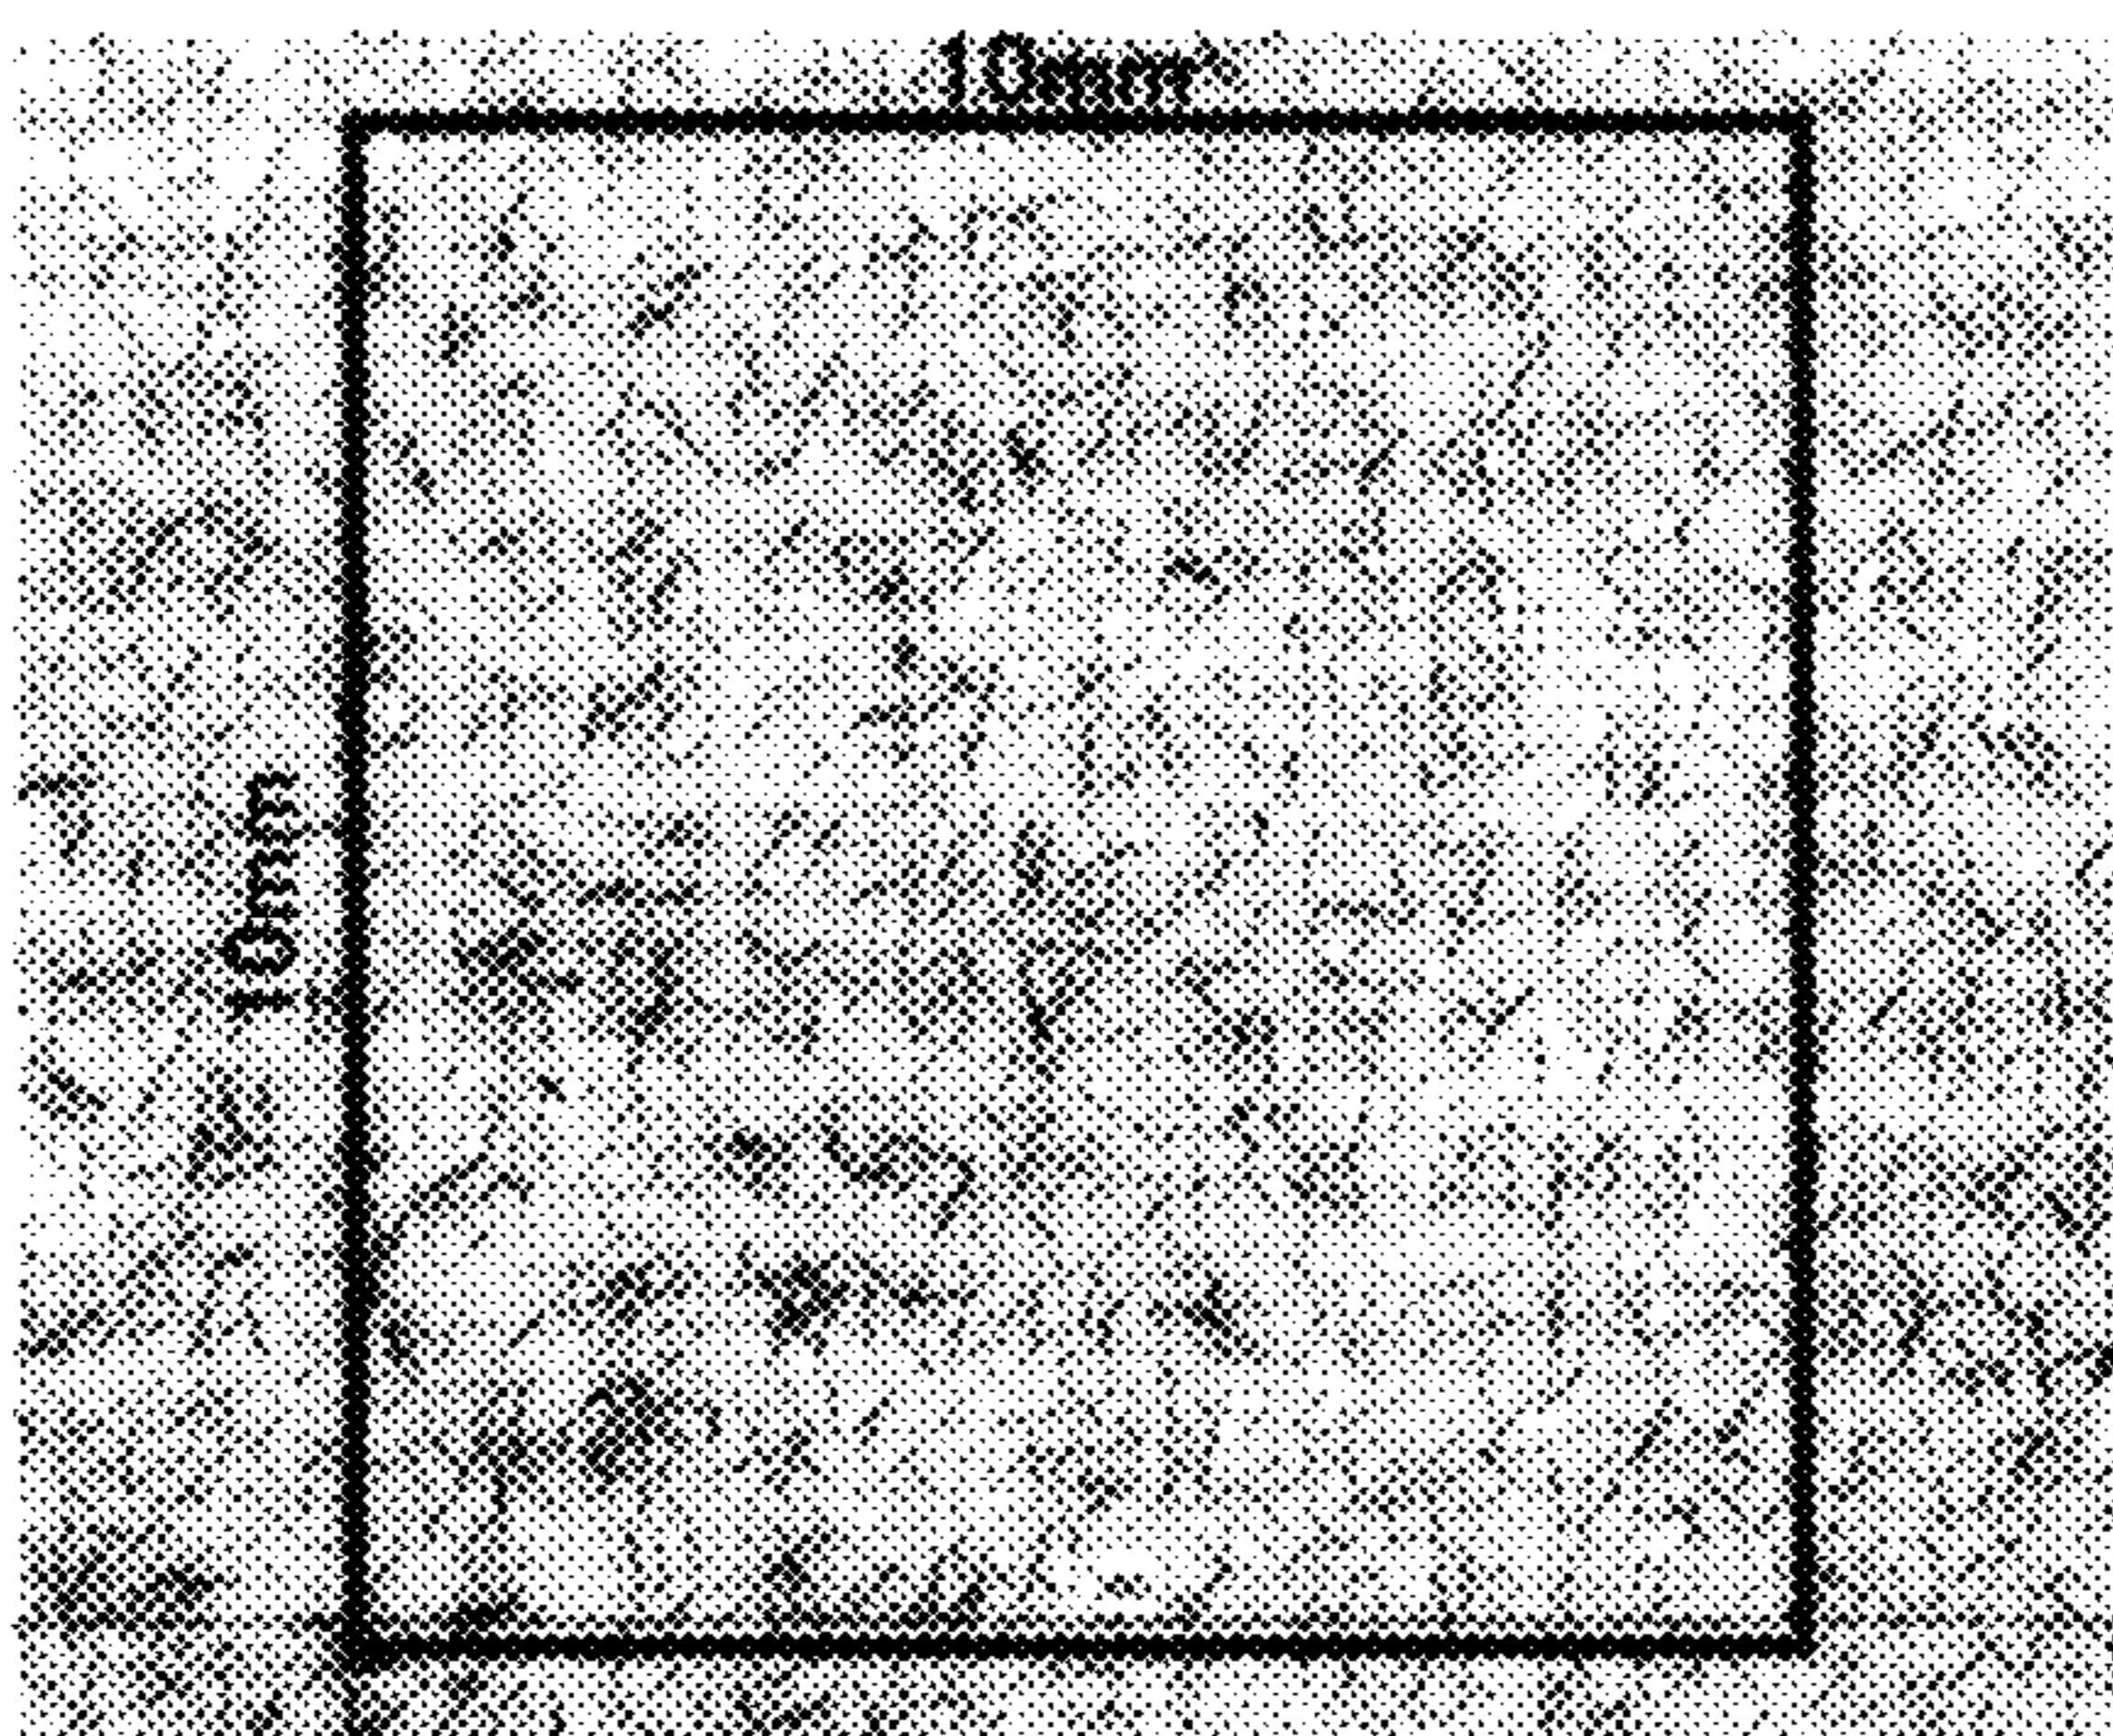 10mm
10mm